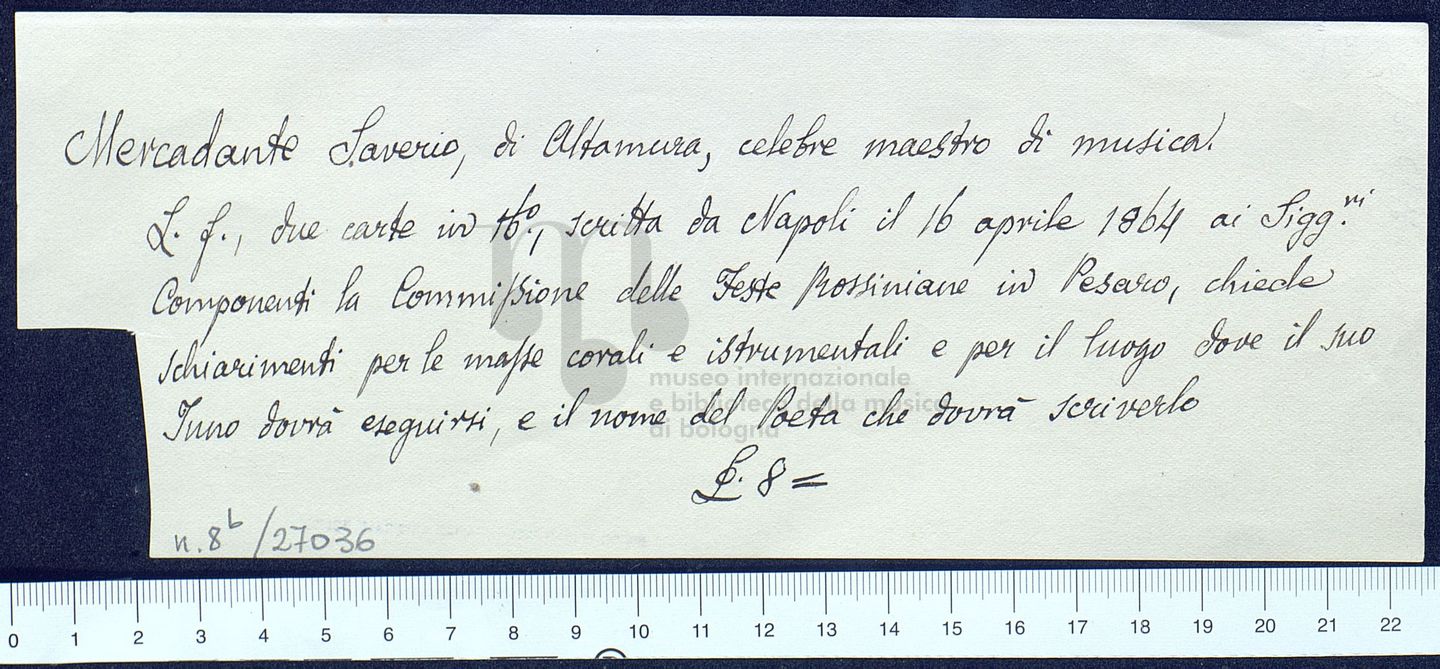 Mercadante Saverio, di Altamura, celebre maestro di musica.
L. f., due carte in 16º, scritta da Napoli il 16 aprile 1864 ai Sigg.ri
Componenti la Commissione delle Feste Rossiniane in Pesaro, chiede
schiarimenti per le masse corali e istrumentali e per il luogo dove il suo
Inno dovrà eseguirsi, e il nome del Poeta che dovrà scriverlo
L. 8=
n. 8b /27036
museo internazionale
e biblioteca della musica
di bologna
0 1 2 3 4 5 6 7 8 9 10 11 12 13 14 15 16 17 18 19 20 21 22